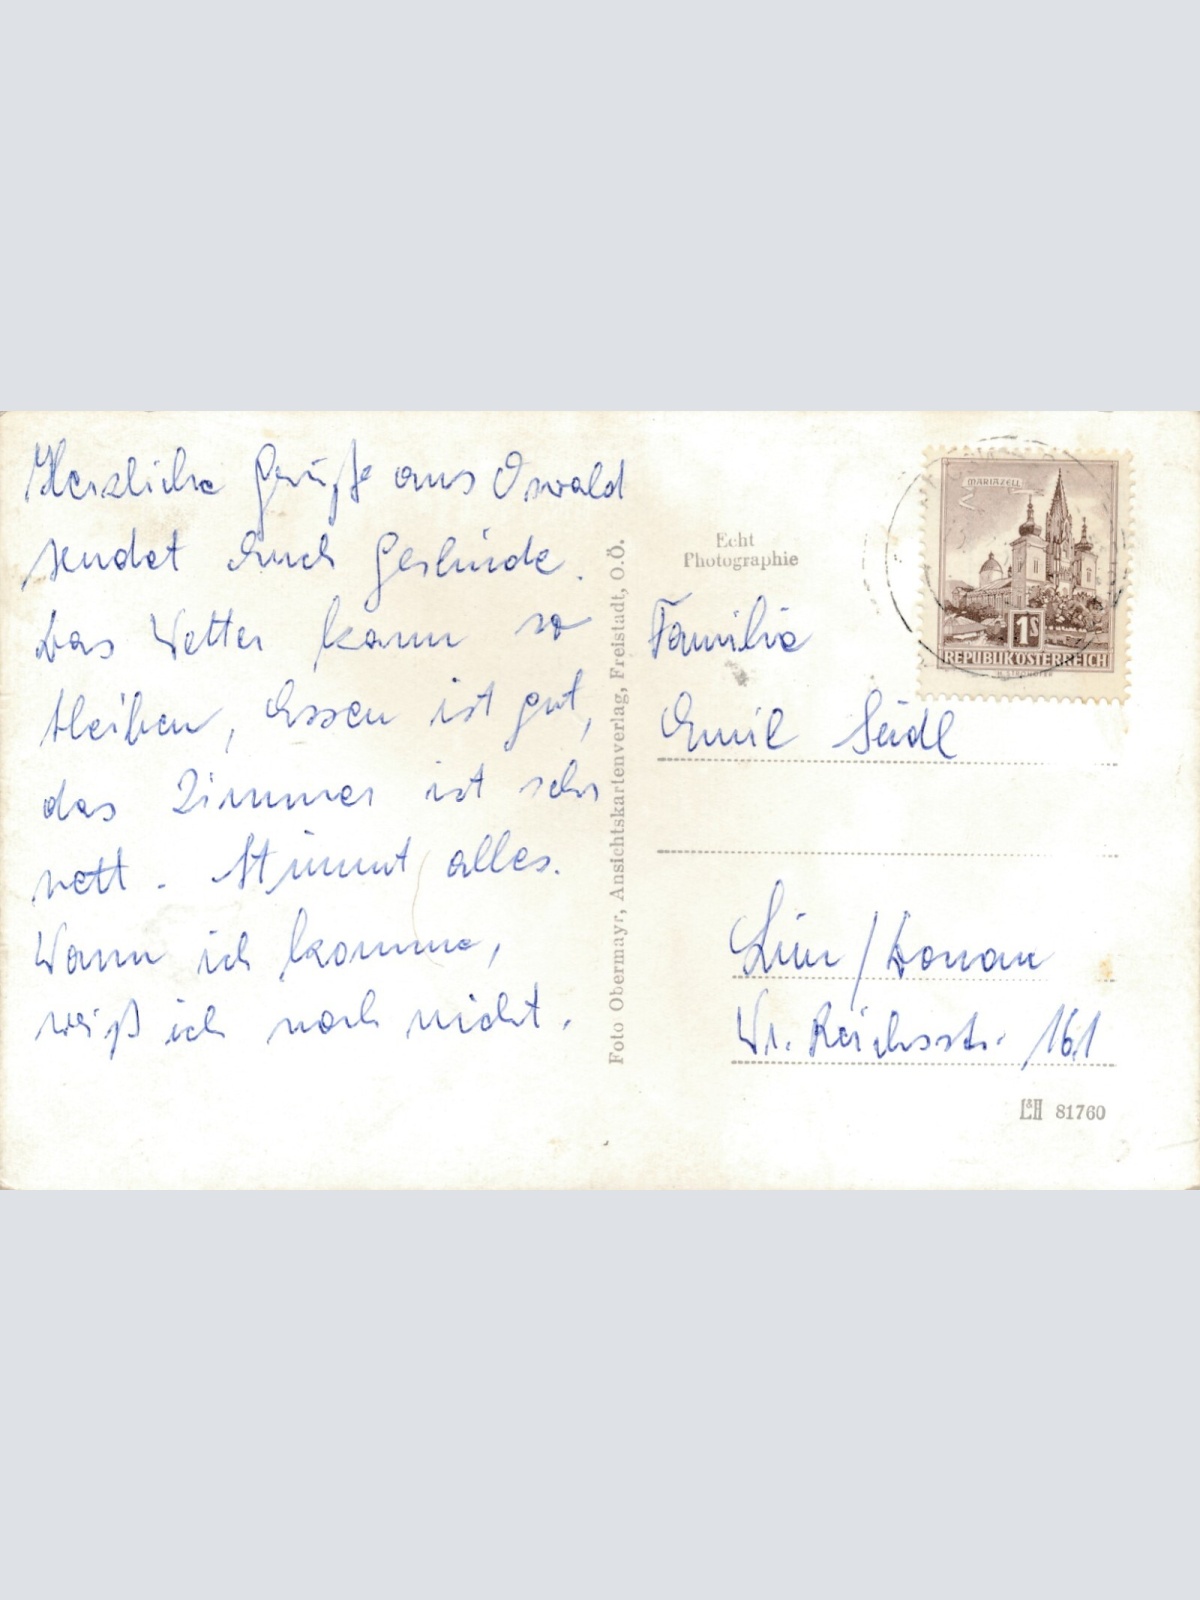 Herzliche Grüße aus Oswald
sendet Euch
Das Wetter kann so
bleiben, Essen ist gut,
das Zimmer ist sehr
nett. Stimmt alles.
Wann ich komme,
weiß ich noch nicht.
Foto Obermayr, Ansichtskartenverlag, Freistadt, O.Ö.
Echt
Photographie
MARIAZELL
1S
REPUBLIK ÖSTERREICH
Familie
Emil Seidl
/Donau
Wr. Reichsstr. 161
L&H 81760